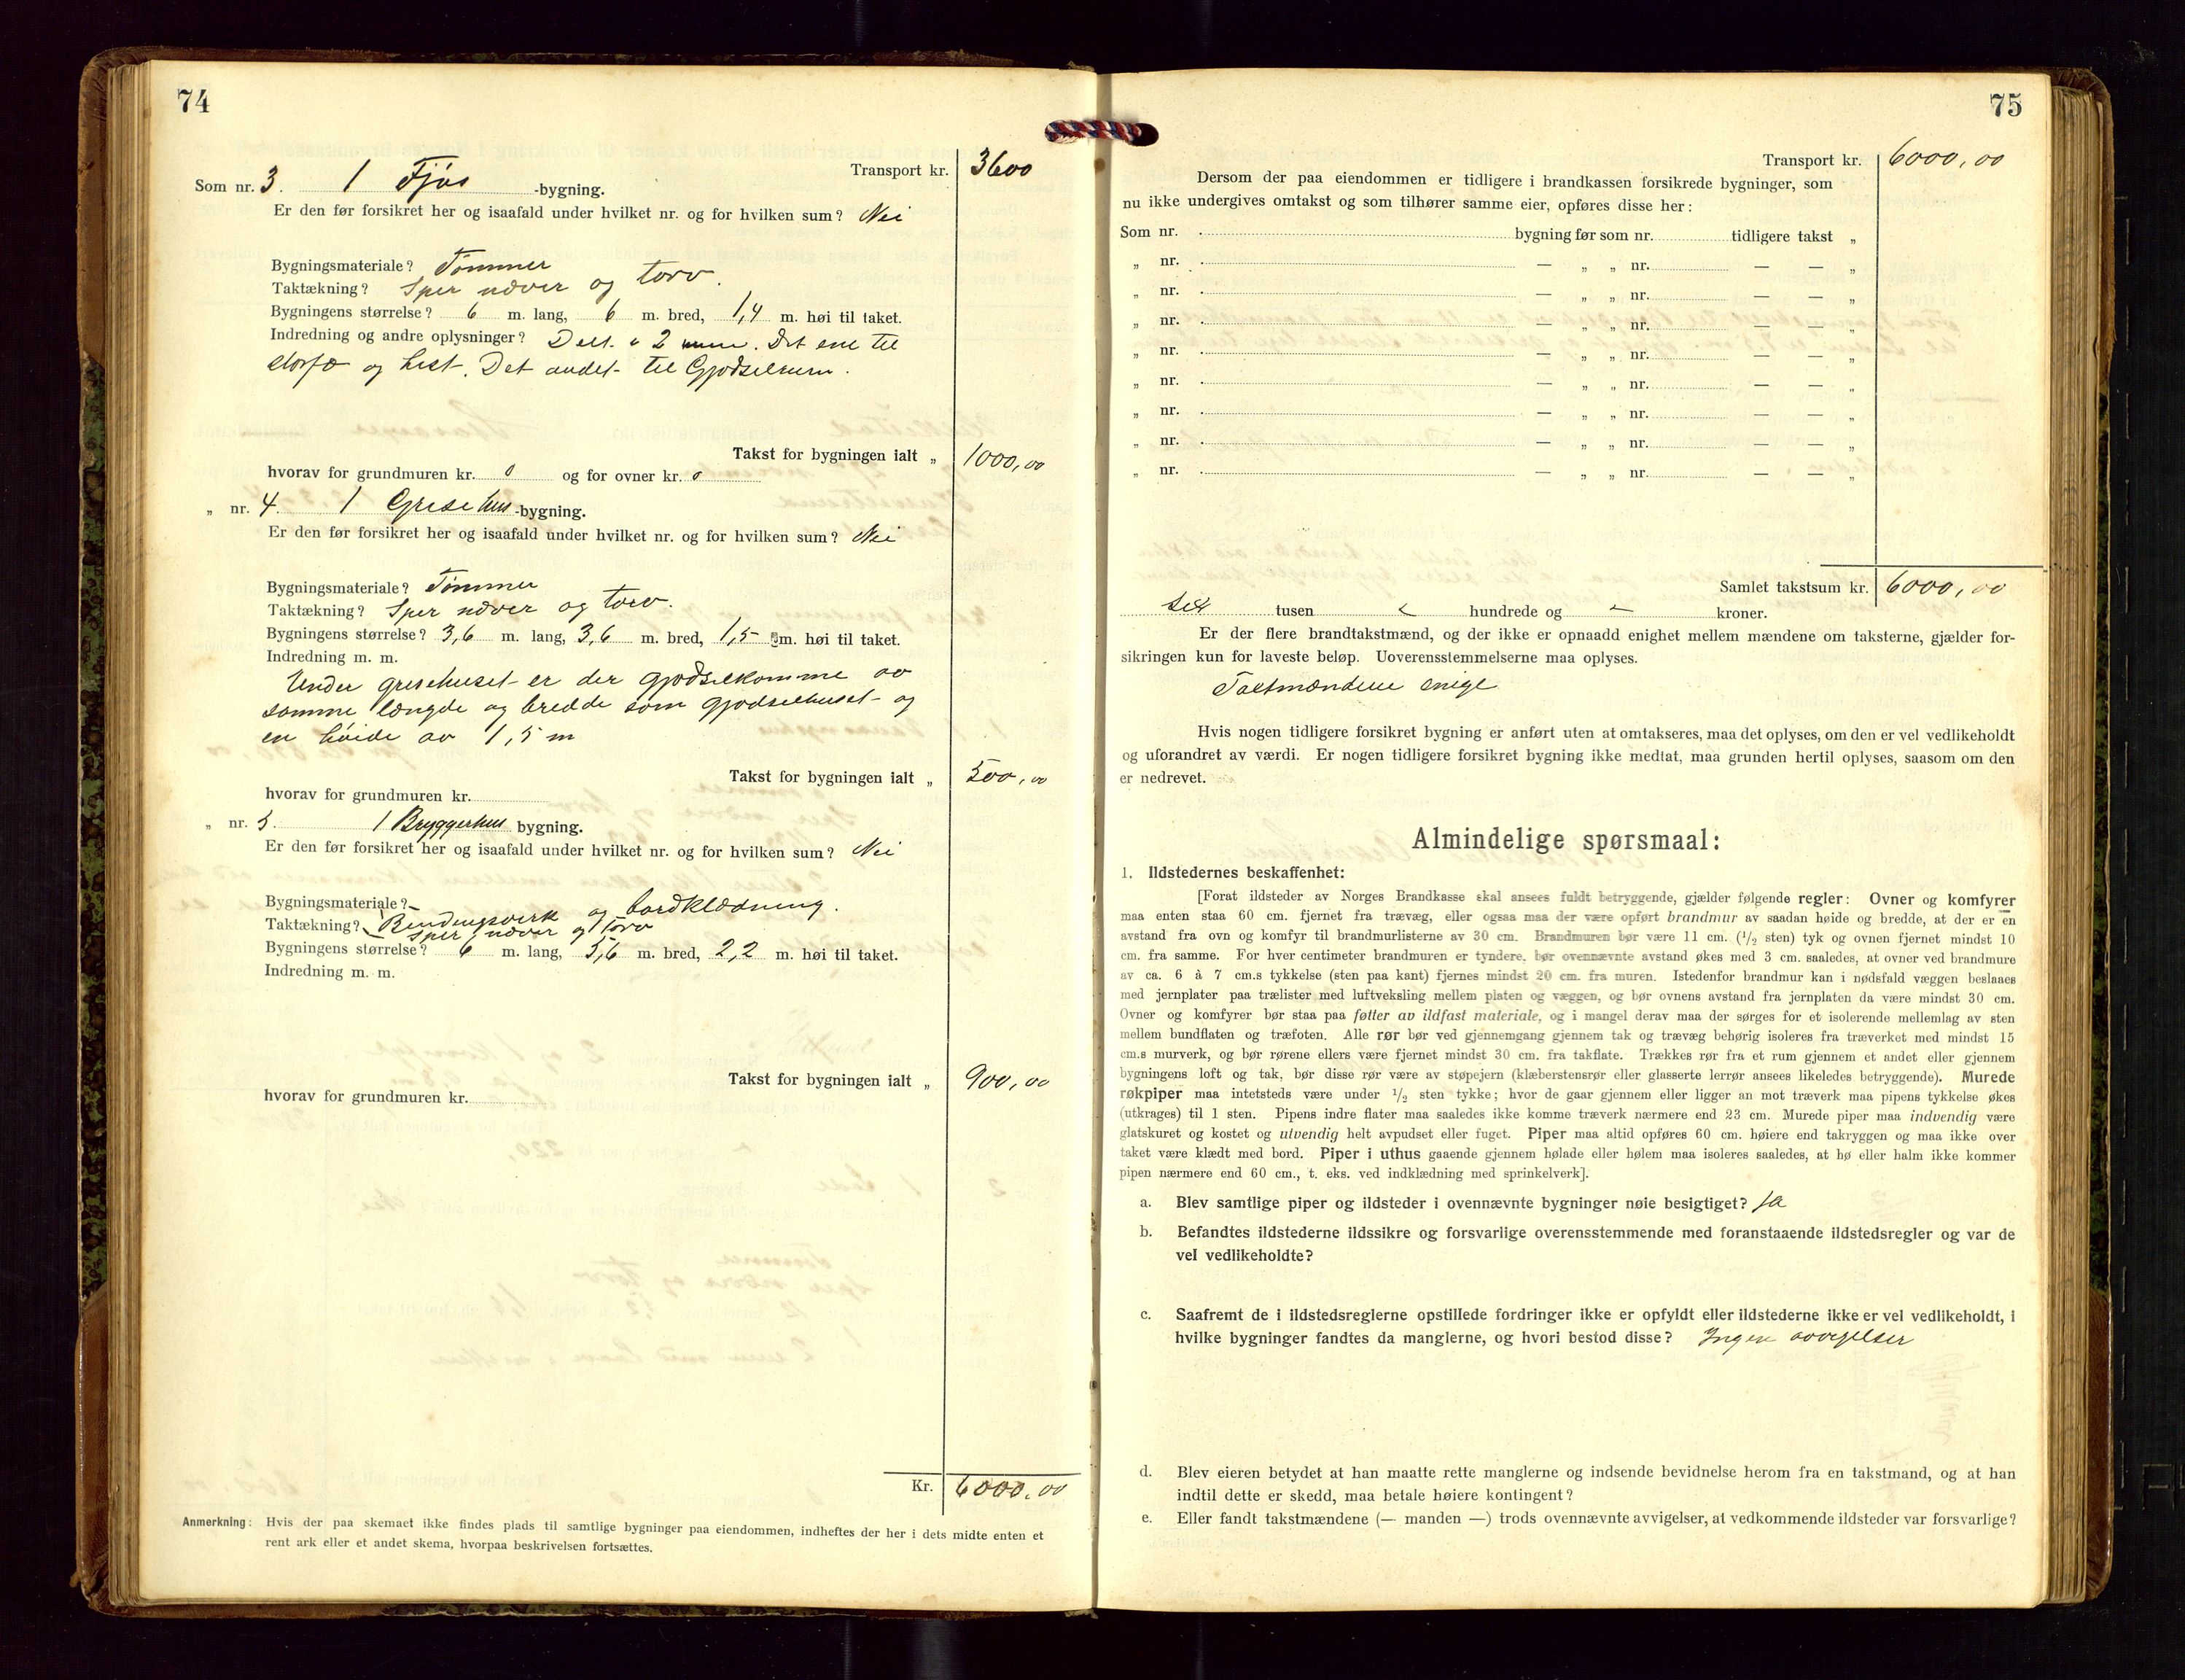 74
Transport kr. 3600
Som nr. 3. 1 Fjøs -bygning.
Er den før forsikret her og isaafald under hvilket nr. og for hvilken sum? Nei
Bygningsmateriale? Tømmer
Taktækning? Sper næver og torv.
Bygningens størrelse? 6 m. lang, 6 m. bred, 1,4 m. høi til taket.
Indredning og andre oplysninger? Delt i 2 rum. Det ene til
storfæ og hest. Det andet til Gjødselrum.
Takst for bygningen ialt „ 1000,00
hvorav for grundmuren kr. 0 og for ovner kr. 0
„ nr. 4. 1 Grisehus -bygning.
Er den før forsikret her og isaafald under hvilket nr. og for hvilken sum? Nei
Bygningsmateriale? Tømmer
Taktækning? Sper næver og torv.
Bygningens størrelse? 3,6 m. lang, 3,6 m. bred, 1,5 m. høi til taket.
Indredning m. m.
Under grisehuset er der gjødselkomme av
samme længde og bredde som gjødselhuset og
en høide av 1,5 m
Takst for bygningen ialt „ 500,00
hvorav for grundmuren kr.
„ nr. 5. 1 Bryggerhus bygning.
Er den før forsikret her og isaafald under hvilket nr. og for hvilken sum? Nei
Bygningsmateriale?
Taktækning? Bindingsverk og bordklædning.
Sper næver og torv
Bygningens størrelse? 6 m. lang, 5,6 m. bred, 2,2 m. høi til taket.
Indredning m. m.
Takst for bygningen ialt „ 900,00
hvorav for grundmuren kr.
Kr. 6000,00
Anmerkning: Hvis der paa skemaet ikke findes plads til samtlige bygninger paa eiendommen, indheftes der her i dets midte enten et
rent ark eller et andet skema, hvorpaa beskrivelsen fortsættes.
75
Transport kr. 6000,00
Dersom der paa eiendommen er tidligere i brandkassen forsikrede bygninger, som
nu ikke undergives omtakst og som tilhører samme eier, opføres disse her:
Som nr. bygning før som nr. tidligere takst „
„ nr. — „ „ nr. — — „
„ nr. — „ „ nr. — — „
„ nr. — „ „ nr. — — „
„ nr. — „ „ nr. — — „
„ nr. — „ „ nr. — — „
„ nr. — „ „ nr. — — „
„ nr. — „ „ nr. — — „
„ nr. — „ „ nr. — — „
Samlet takstsum kr. 6000,00
sex tusen hundrede og kroner.
Er der flere brandtakstmænd, og der ikke er opnaadd enighet mellem mændene om taksterne, gjælder for-
sikringen kun for laveste beløp. Uoverensstemmelserne maa oplyses.
Takstmændene enige
Hvis nogen tidligere forsikret bygning er anført uten at omtakseres, maa det oplyses, om den er vel vedlikeholdt
og uforandret av værdi. Er nogen tidligere forsikret bygning ikke medtat, maa grunden hertil oplyses, saasom om den
er nedrevet.
Almindelige spørsmaal:
1. Ildstedernes beskaffenhet:
[Forat ildsteder av Norges Brandkasse skal ansees fuldt betryggende, gjælder følgende regler: Ovner og komfyrer
maa enten staa 60 cm. fjernet fra trævæg, eller ogsaa maa der være opført brandmur av saadan høide og bredde, at der er en
avstand fra ovn og komfyr til brandmurlisterne av 30 cm. Brandmuren bør være 11 cm. (1/2 sten) tyk og ovnen fjernet mindst 10
cm. fra samme. For hver centimeter brandmuren er tyndere, bør ovennævnte avstand økes med 3 cm. saaledes, at ovner ved brandmure
av ca. 6 à 7 cm.s tykkelse (sten paa kant) fjernes mindst 20 cm. fra muren. Istedenfor brandmur kan i nødsfald væggen beslaaes
med jernplater paa trælister med luftveksling mellem platen og væggen, og bør ovnens avstand fra jernplaten da være mindst 30 cm.
Ovner og komfyrer bør staa paa føtter av ildfast materiale, og i mangel derav maa der sørges for et isolerende mellemlag av sten
mellem bundflaten og træfoten. Alle rør bør ved gjennemgang gjennem tak og trævæg behørig isoleres fra træverket med mindst 15
cm.s murverk, og bør rørene ellers være fjernet mindst 30 cm. fra takflate. Trækkes rør fra et rum gjennem et andet eller gjennem
bygningens loft og tak, bør disse rør være av støpejern (klæberstensrør eller glasserte lerrør ansees likeledes betryggende). Murede
røkpiper maa intetsteds være under 1/2 sten tykke; hvor de gaar gjennem eller ligger an mot træverk maa pipens tykkelse økes
(utkrages) til 1 sten. Pipens indre flater maa saaledes ikke komme træverk nærmere end 23 cm. Murede piper maa indvendig være
glatskuret og kostet og utvendig helt avpudset eller fuget. Piper maa altid opføres 60 cm. høiere end takryggen og maa ikke over
taket være klædt med bord. Piper i uthus gaaende gjennem hølade eller hølem maa isoleres saaledes, at hø eller halm ikke kommer
pipen nærmere end 60 cm., t. eks. ved indklædning med sprinkelverk].
a. Blev samtlige piper og ildsteder i ovennævnte bygninger nøie besigtiget? Ja
b. Befandtes ildstederne ildssikre og forsvarlige overensstemmende med foranstaaende ildstedsregler og var de
vel vedlikeholdte?
c. Saafremt de i ildstedsreglerne opstillede fordringer ikke er opfyldt eller ildstederne ikke er vel vedlikeholdt, i
hvilke bygninger fandtes da manglerne, og hvori bestod disse? Ingen avvigelser
d. Blev eieren betydet at han maatte rette manglerne og indsende bevidnelse herom fra en takstmand, og at han
indtil dette er skedd, maa betale høiere kontingent?
e. Eller fandt takstmændene (— manden —) trods ovennævnte avvigelser, at vedkommende ildsteder var forsvarlige?